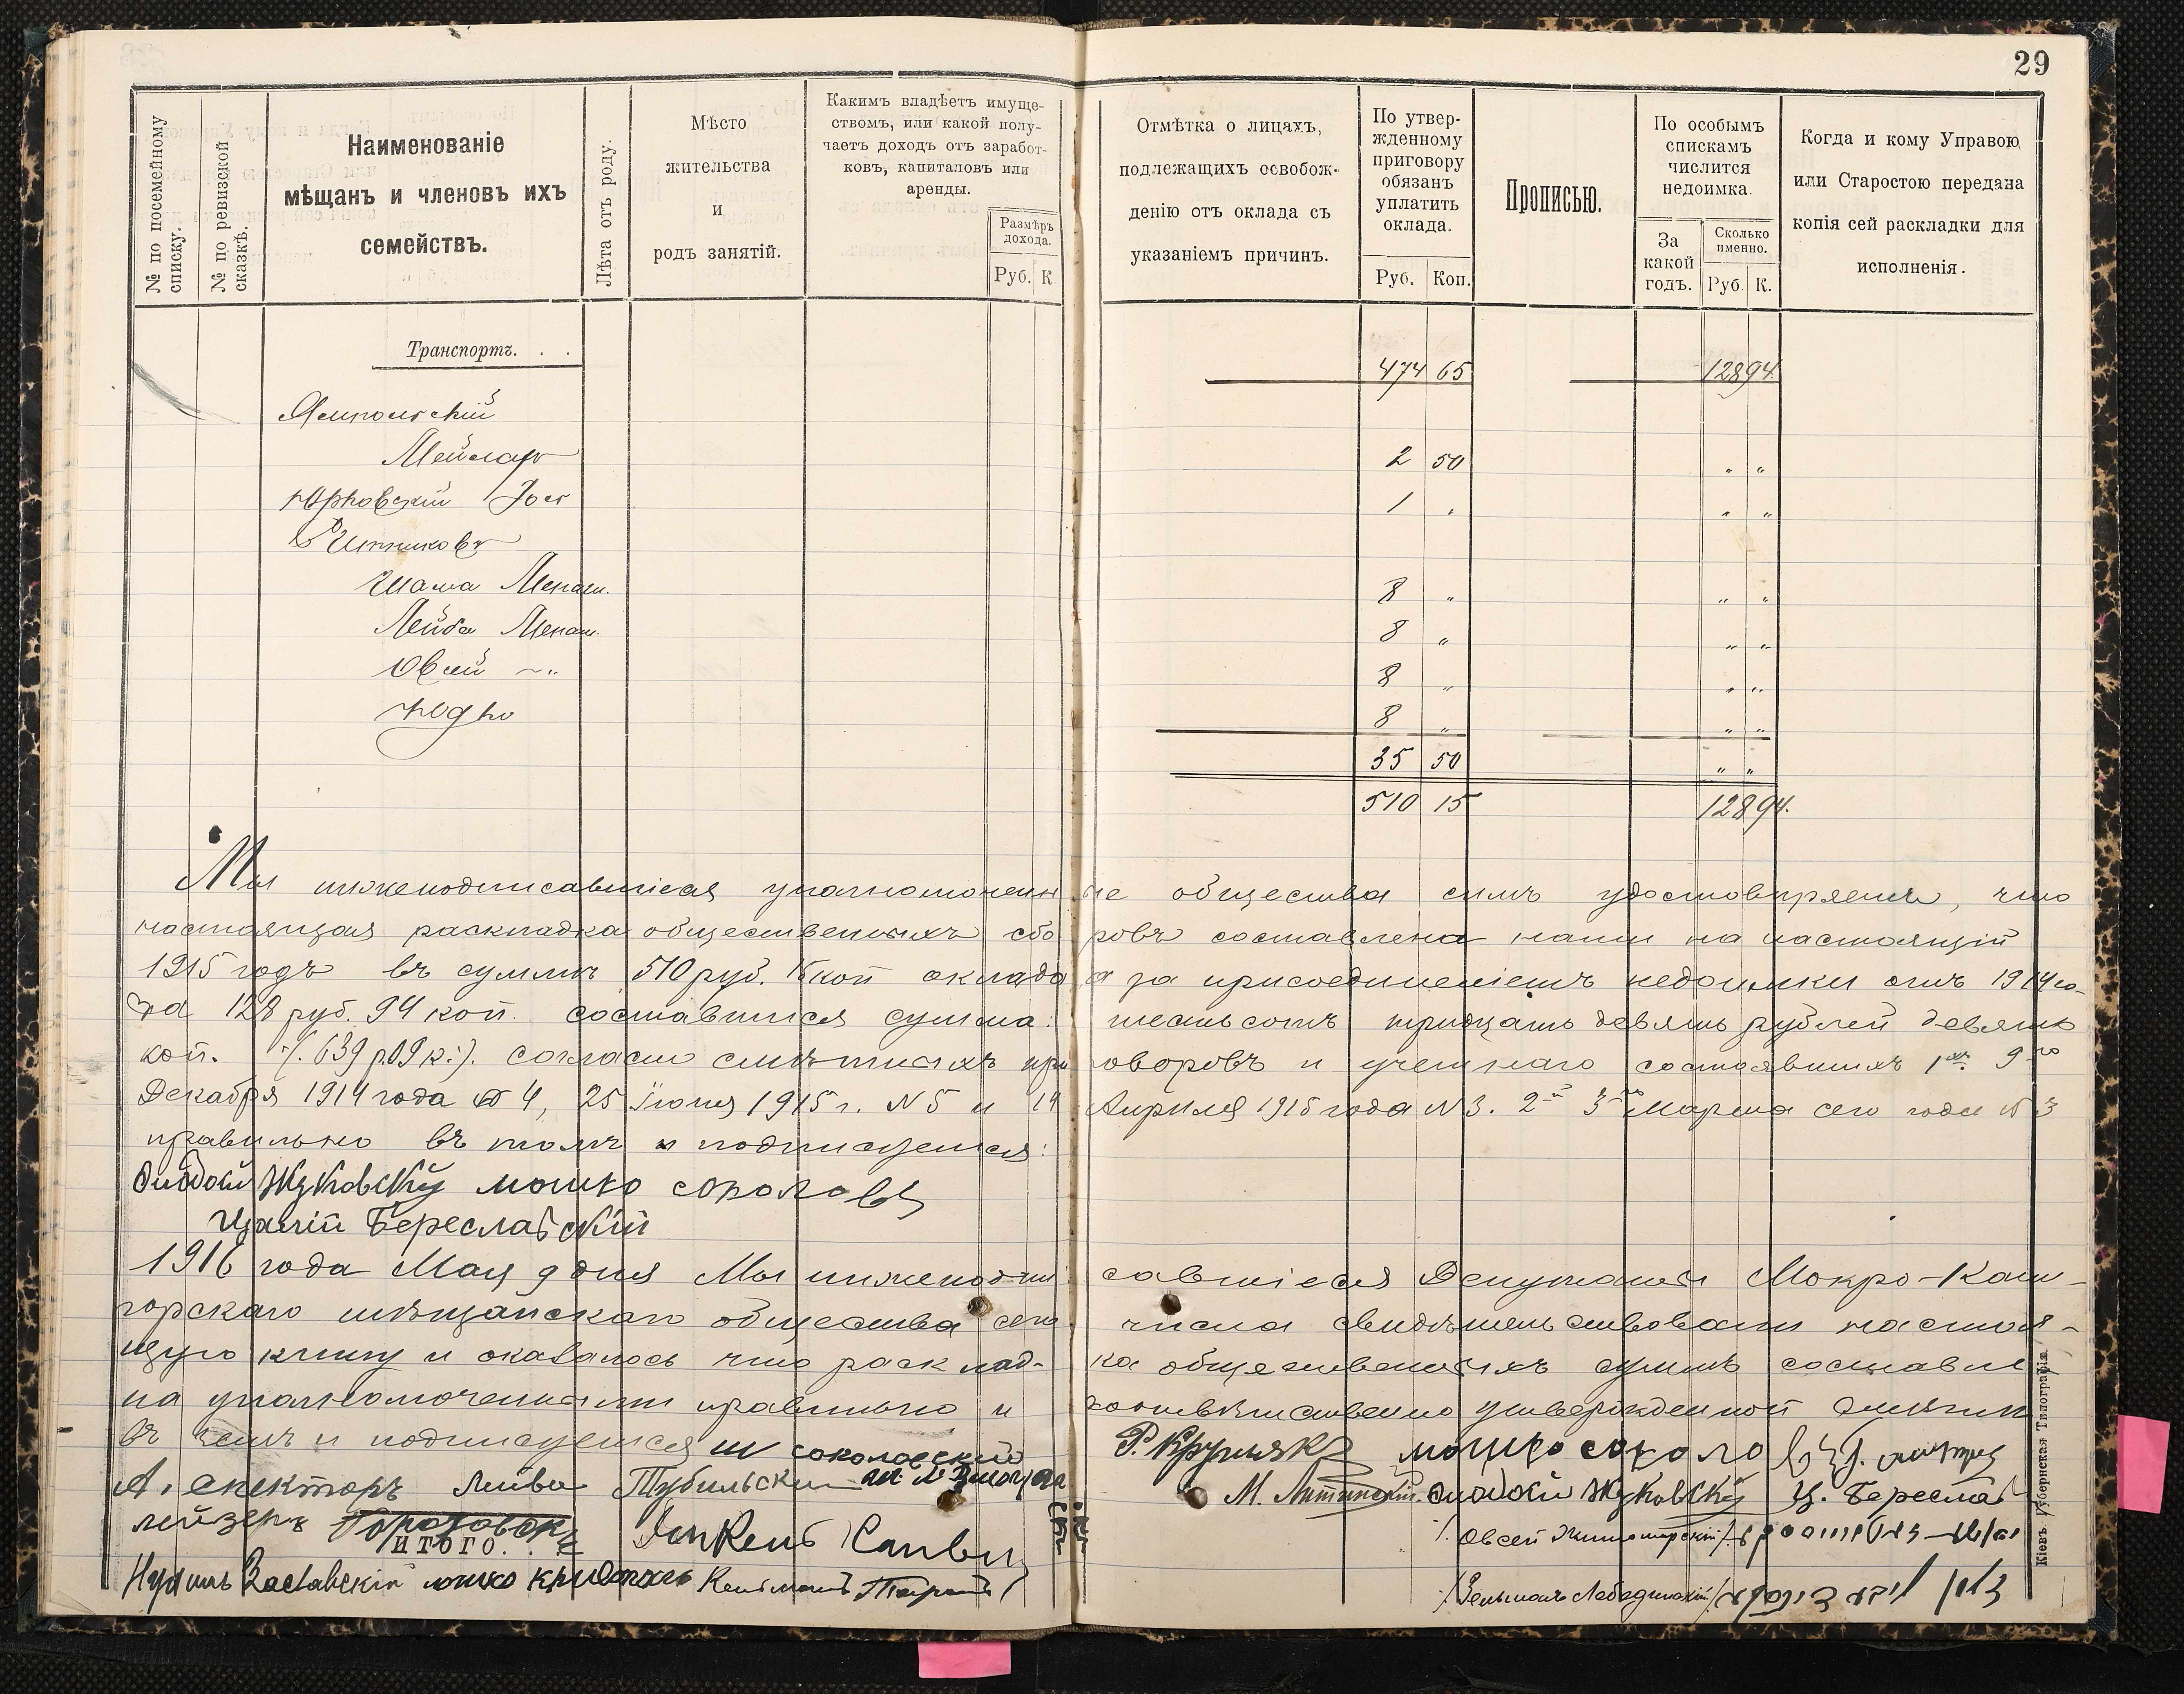 29
№ по посемейному списку.
№ по ревизской сказкѣ.
Наименованіе
мѣщанъ и членовъ ихъ
семействъ.
Лѣта отъ роду.
Мѣсто
жительства
и
родъ занятій.
Какимъ владѣетъ имуще-
ствомъ, или какой полу-
чаетъ доходъ отъ заработ-
ковъ, капиталовъ или
аренды.
Размѣръ
дохода.
Руб. К
Отмѣтка о лицахъ,
подлежащихъ освобож-
денію отъ оклада съ
указаніемъ причинъ.
По утвер-
жденному
приговору
обязанъ
уплатить
оклада.
Руб. Коп.
Прописью.
По особымъ
спискамъ
числится
недоимка.
За
какой
годъ.
Сколько
именно.
Руб. К.
Когда и кому Управою
или Старостою передана
копія сей раскладки для
исполненія.
Транспортъ. . . 474 65 128 94
Ямпольскій
Мейлахъ 2 50 " "
Юрковскій Іос 1 " " "
Ѳитниковъ
Шама Менаш. 8 " " "
Лейба Менаш. 8 " " "
Овсей ~" 8 " " "
Юдко 8 " " "
35 50 " "
510 15 128 94.
Мы нижеподписавшіеся уполномоченные общества симъ удостовѣряемъ, что
настоящая раскладка общественныхъ сборовъ составлена нами на настоящій
1915 годъ въ суммѣ 510 руб. 15 коп оклада а за присоединеніемъ недоимки отъ 1914 го-
да 128 руб. 94 коп. составится сумма: шестьсотъ тридцать девять рублей девять
коп. /. 639 р. 09 к. /. согласно смѣтныхъ приговоровъ и учетнаго состоявшихъ 1хъ. 9го
Декабря 1914 года № 4, 25 Іюня 1915 г. N 5 и 14 Апрѣля 1915 года N 3. 2й 3го Марта сего года № 3
правильно въ томъ и подписуемся:
Жуковскій мошко соколовъ
Береславскій
1916 года Мая 9 дня Мы нижеподписавшіеся Депутаты Мокро-Кали-
горскаго мѣщанскаго общества сего числа свидѣтельствовали настоя-
щую книгу и оказалось что расклад- ка общественныхъ суммъ составле
на уполномоченными правильно и соотвѣтственно утвержденной смѣти
въ чемъ и подписуемся Ш Соколовскій Р. Крупякъ мошко соколо
А. Спекторъ Лейба Тубильски М. Литинскій. Жуковскій Ц. Береслав
лейзеръ Гороховск
ИТОГО. . . Янкель
/. Овсей Житомирскій /.
Заславскій Кельманъ
/. Зельманъ Лебединскій /.
Кіевъ. Губернская Типографія.